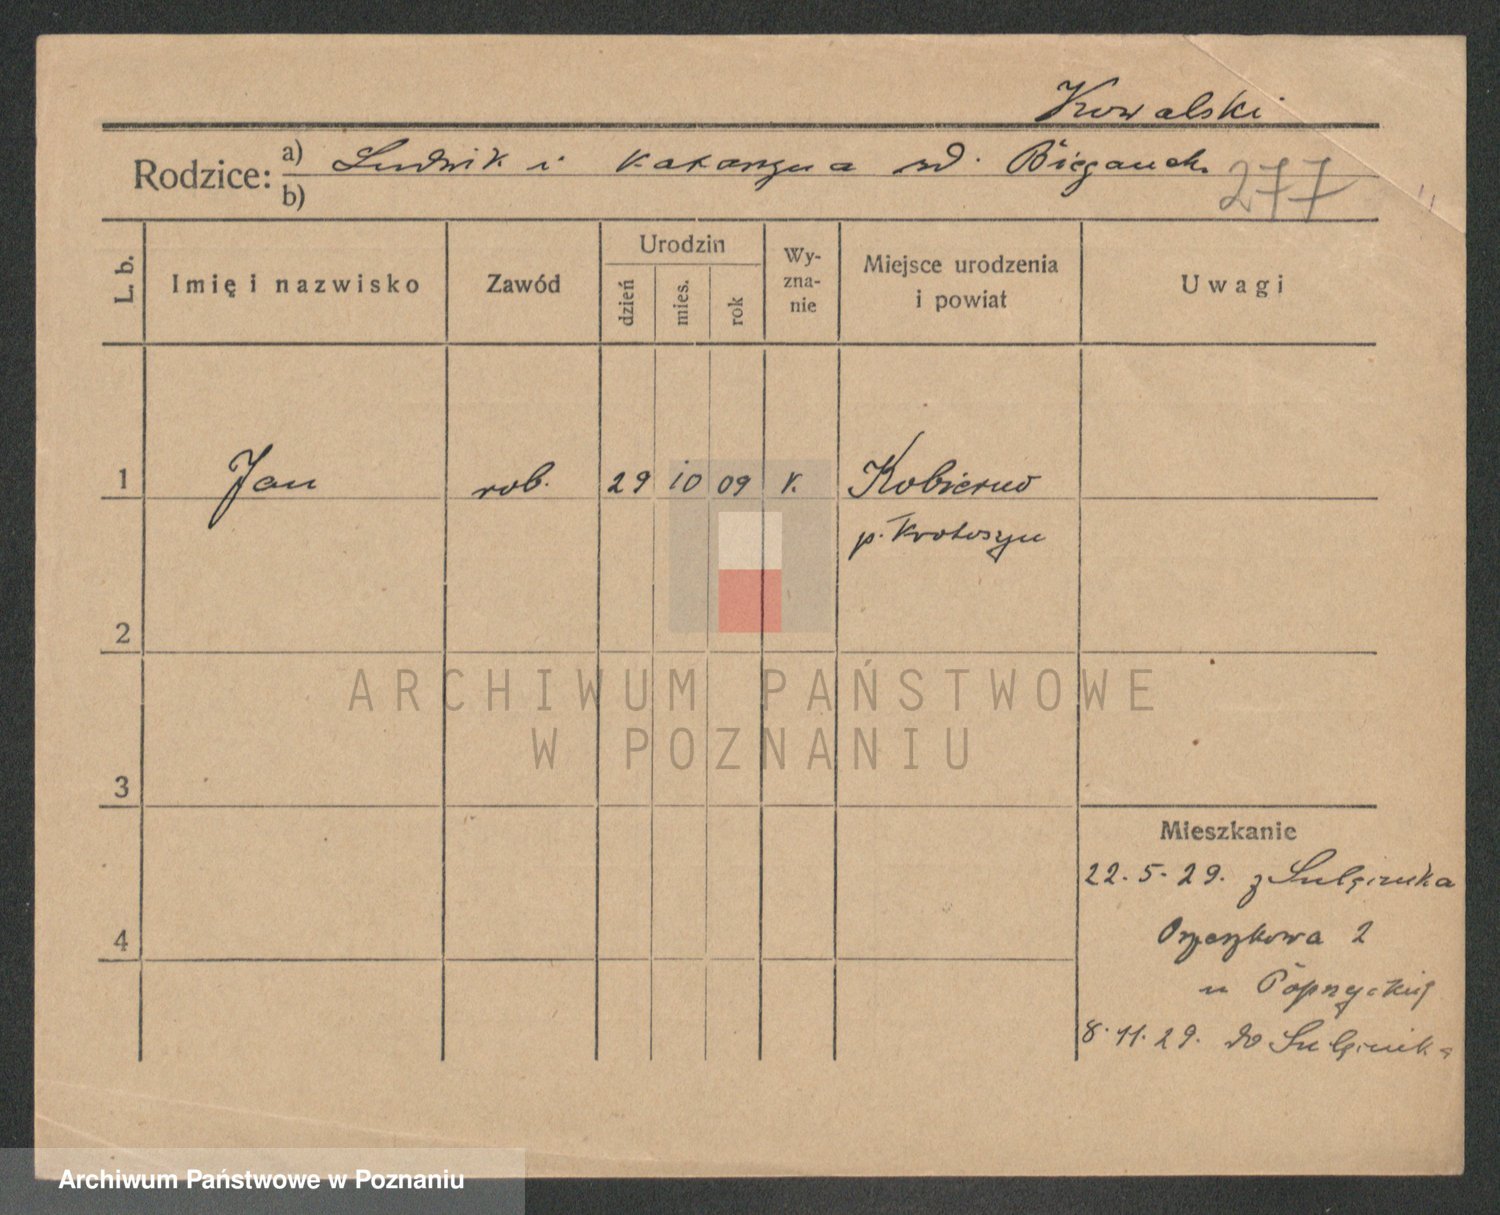 Kowalski
Rodzice: a) Ludwik i Katarzyna
b)
277
L. b.
Imię i nazwisko
Zawód
Urodzin
dzień
mies.
rok
Wy-
zna-
nie
Miejsce urodzenia
i powiat
Uwagi
1 Jan rob. 29 10 09 k. Kobierno
p. Krotoszyn
2
ARCHIWUM PAŃSTWOWE
W POZNANIU
3
Mieszkanie
22.5.29. z
4 Orzeszkowa 2
u
8.11.29. do
Archiwum Państwowe w Poznaniu